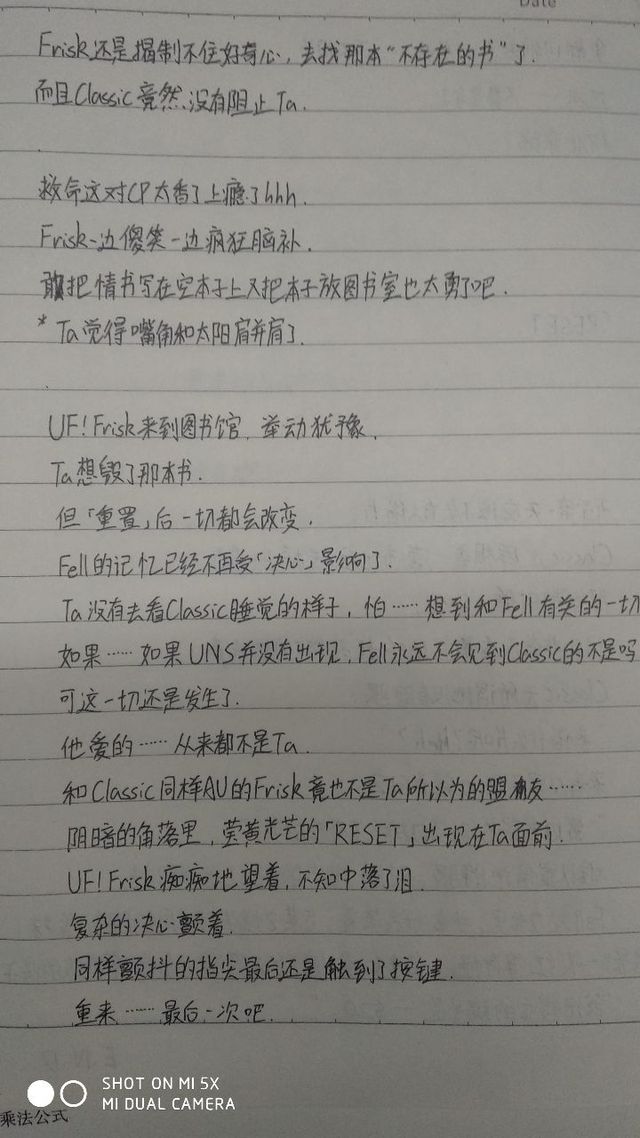 Date
Frisk还是揭制不住好奇心,去找那本"不存在的书"了.
而且Classic竟然没有阻止Ta.
救命这对CP太香了上瘾了hhh.
Frisk一边傻笑一边疯狂脑补.
敢把情书写在空本子上又把本子放图书室也太勇了吧.
* Ta觉得嘴角和太阳肩并肩了.
UF!Frisk来到图书馆,举动犹豫.
Ta想毁了那本书.
但「重置」后一切都会改变.
Fell的记忆已经不再受「决心」影响了.
Ta没有去看Classic睡觉的样子,怕……想到和Fell有关的一切
如果……如果UNS并没有出现,Fell永远不会见到Classic的不是吗
可这一切还是发生了.
他爱的……从来都不是Ta.
和Classic同样AU的Frisk竟也不是Ta所以为的盟友……
阴暗的角落里,莹黄光芒的「RESET」出现在Ta面前.
UF!Frisk痴痴地望着,不知中落了泪.
复杂的决心颤着.
同样颤抖的指尖最后还是触到了按键.
重来……最后一次吧.
SHOT ON MI 5X
MI DUAL CAMERA
乘法公式